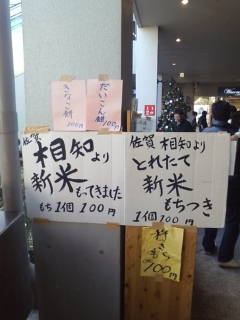 きなこ餅
100円
だいこん餅
100円
佐賀
相知より
新米
もってきました
もち1個100円
佐賀 相知より
とれたて
新米
もちつき
1個100円
100円